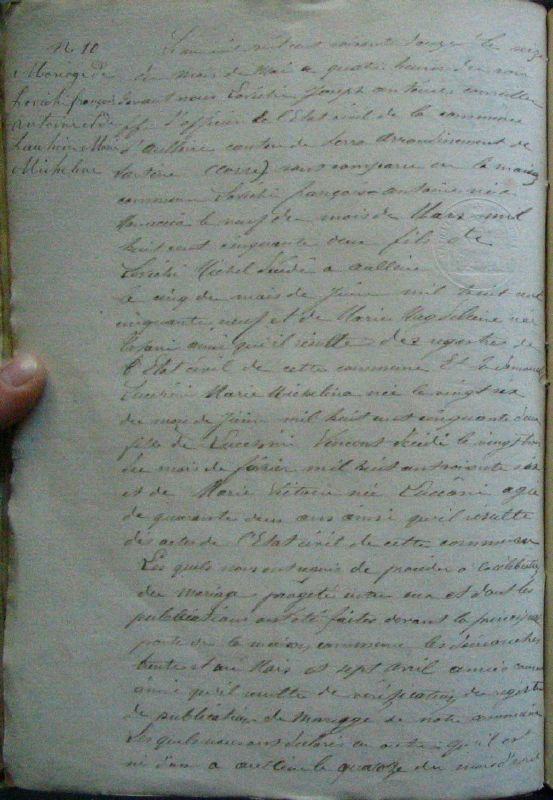 N. 10
Mariage de
Lovichi françois
Antoine et de
Lucchini Marie
Micheline
L'an mil huit cent soixante douze le seize
du mois de Mai a quatre heures du soir
devant nous Lovichi Joseph antoine conseiller
ff. d'officier de l'Etat civil de la commune
d'aullène canton de Serra arrondissement de
Sartène (Corse) sont comparu en la maison
commune Lovichi françois antoine né a
le neuf du mois de Mars mil
huit cent cinquante deux fils de
Lovichi Michel décédé a aullène
le cinq du mois de Juin mil huit cent
cinquante neuf et de Marie Magdeleine née
ainsi qu'il résulte des registres de
l'Etat civil de cette commune Et la demoiselle
Lucchini Marie Michelina née le vingt six
du mois de Juin mil huit cent cinquante deux
fille de Lucchini Vincent décédé le vingt
du mois de février mil huit cent soixante six
et de Marie Victoire née Lucchini agée
de quarante deux ans ainsi qu'il résulte
des actes de l'Etat civil de cette commune
Les quels nous ont requis de procéder a la célébration
du mariage projeté entre eux et dont les
publications ont été faites devant la principale
porte de la maison commune les dimanches
trente et un Mars et sept Avril année courante
ainsi qu'il résulte de vérification du registre
de publication de Mariage de notre commune
Les quels nous ont déclaré en outre qu'il est
né d'eux a aullène le quatorze du mois d'avril